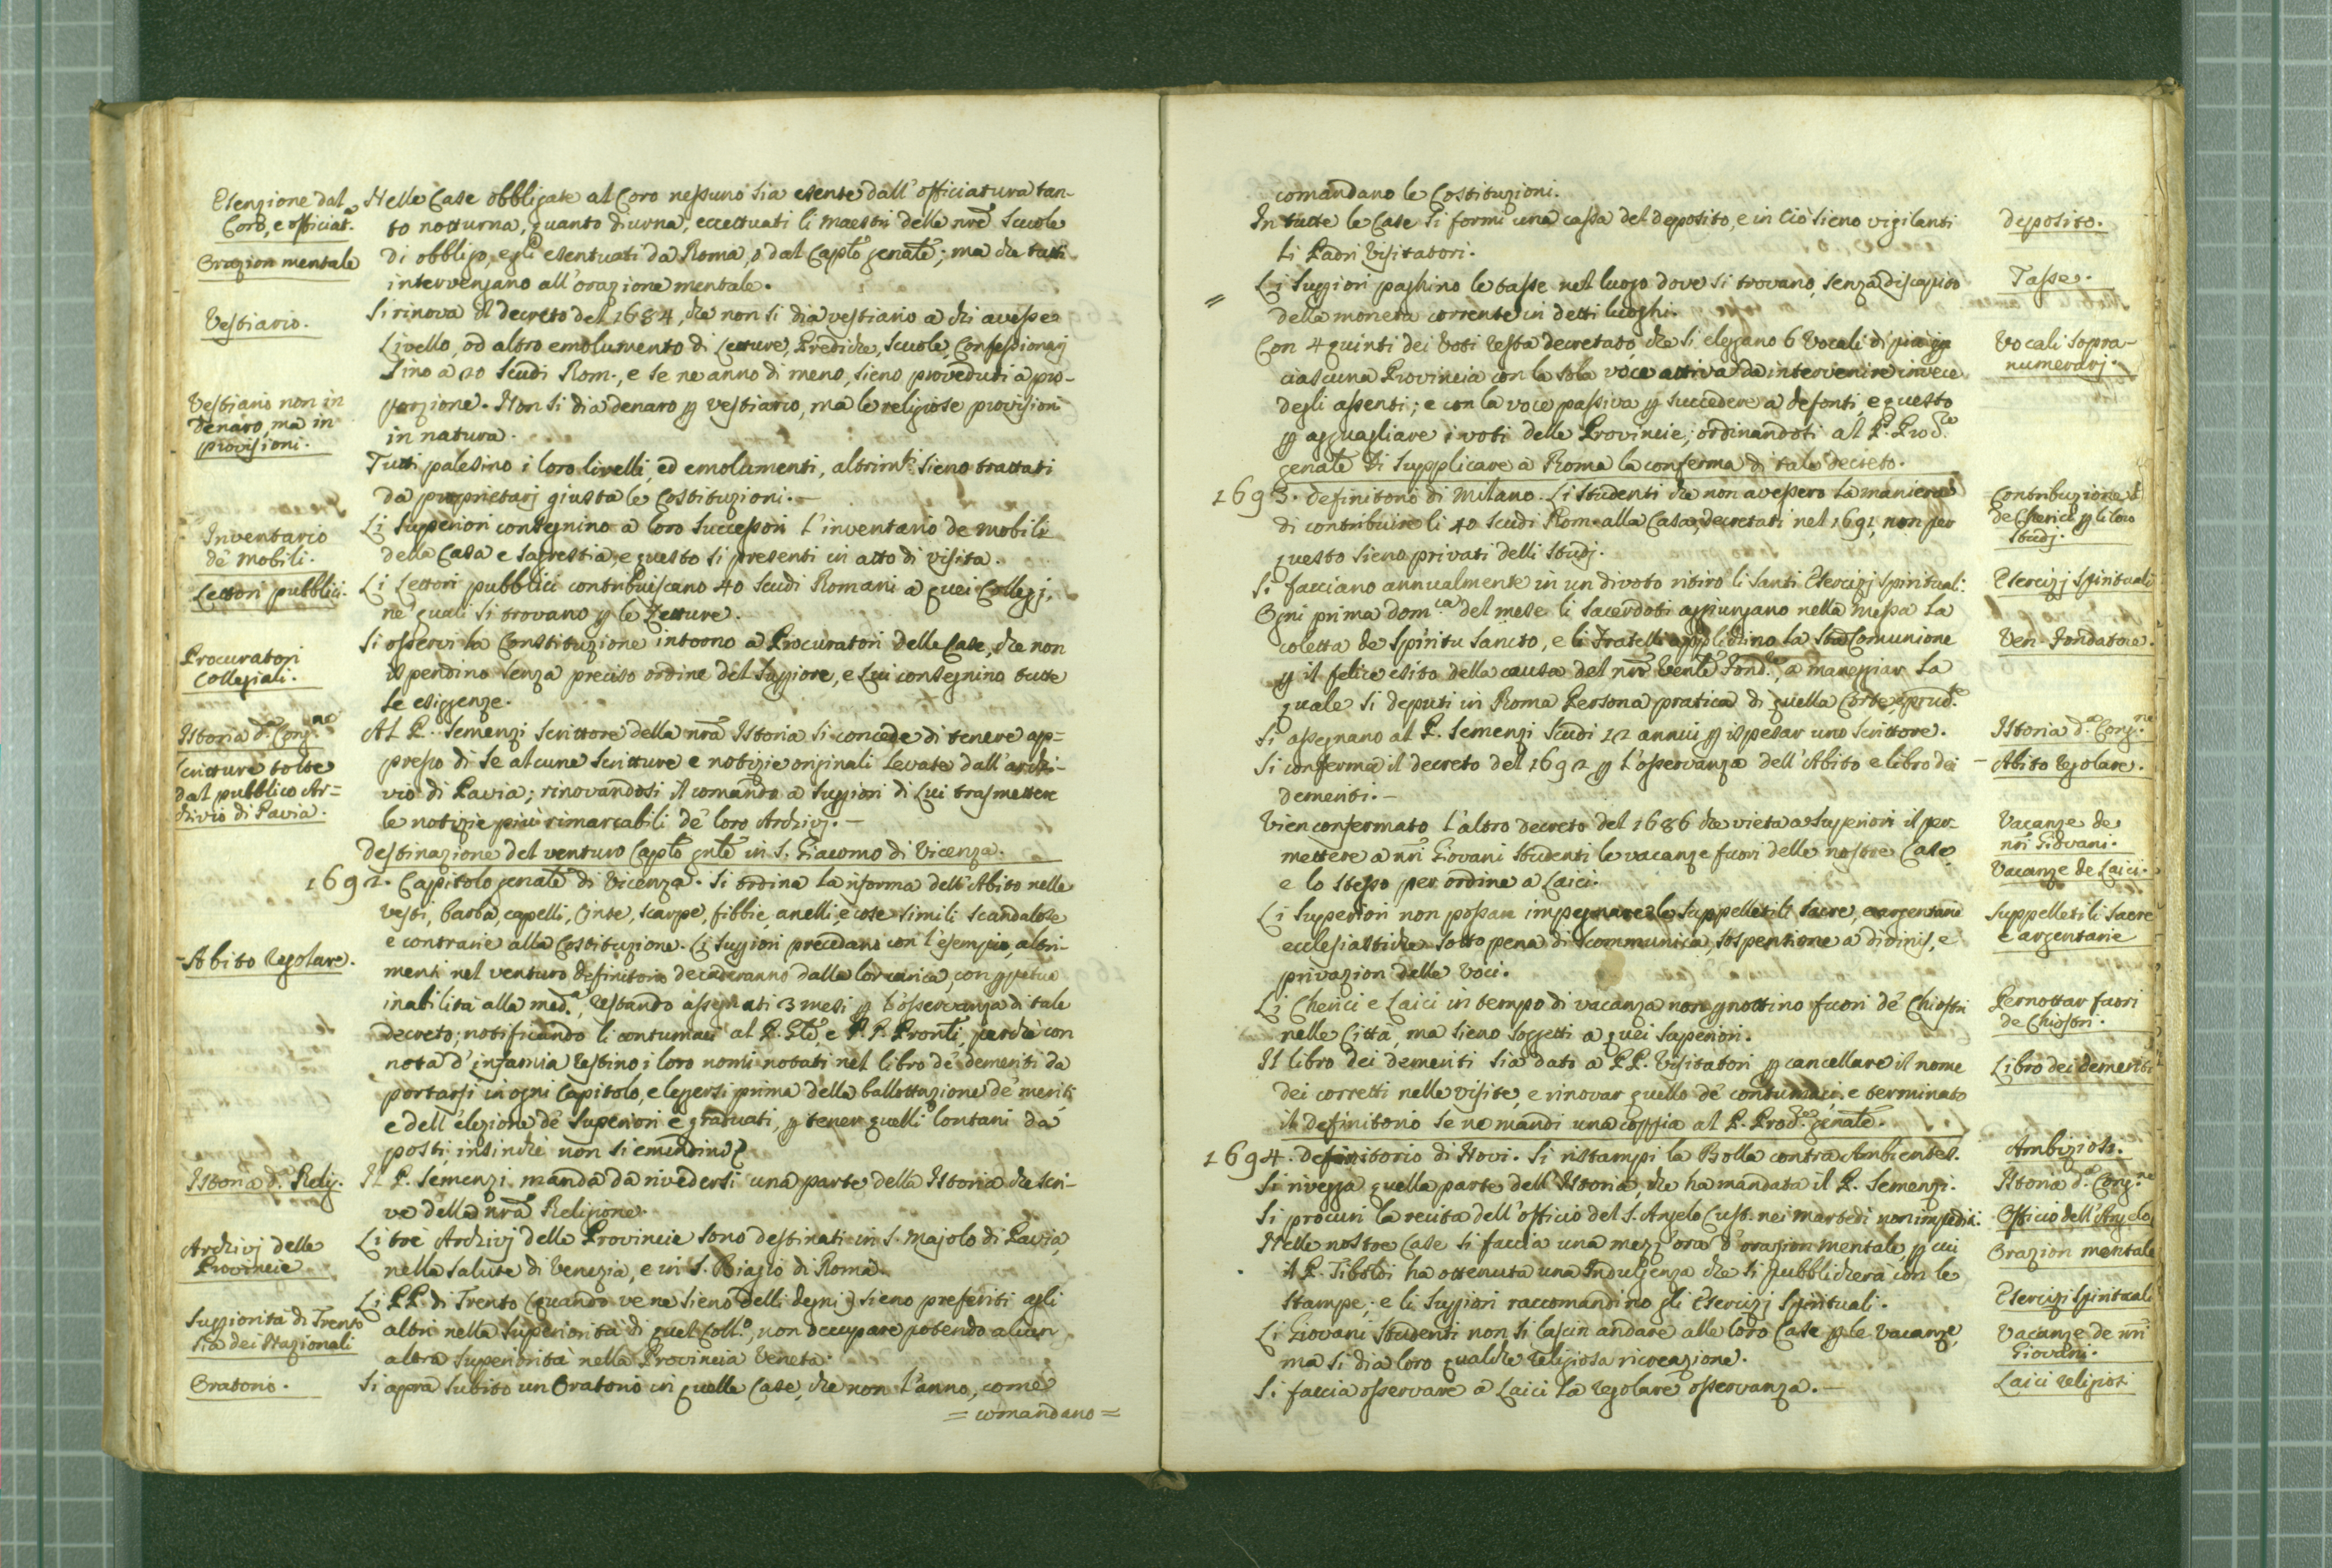 Esenzione dal
Coro, e officiat.ª
Orazion mentale
Vestiario.
Vestiario non in
denaro, ma in
provisioni.
Inventario
de mobili.
Lettori pubblici.
Procuratori
Collegiali.
Istoria d.ª Cong.ne
Scritture tolte
dal pubblico Ar=
chivio di Pavia.
-Abito regolare.
Istoria d.ª Relig.
Archivj delle
Provincie
Suppiorità di Trento
sia dei Nazionali
Oratorio.
Nelle Case obbligate al Coro nessuno sia esente dall'officiatura tan-
to notturna, quanto diurna, eccettuati li Maestri delle nre Scuole
di obbligo, e gli esentuati da Roma, o dal Caplo genale; ma che tutti
intervengano all'orazione mentale.
Si rinova il decreto del 1684, che non si dia vestiario a chi avesse
Livello, od altro emolumento di Letture, Prediche, Scuole, Confessionarj
sino a 20 Scudi Rom., e se ne anno di meno, sieno proveduti a pro-
porzione. Non si dia denaro p vestiario, ma le religiose provisioni
in natura.
Tutti palesino i loro livelli, ed emolumenti, altrimti sieno trattati
da proprietarj giusta le Costituzioni.-
Li Superiori consegnino a loro Successori l'inventario de mobili
della Casa e Sagrestia, e questo si presenti in atto di visita.
Li Lettori pubblici contribuiscano 40 Scudi Romani a quei Collegj,
ne' quali si trovano p le Letture.
Si osservi la Constituzione intorno a Procuratori delle Case, che non
ispendino senza preciso ordine del Suppiore, e Lui consegnino tutte
le esiggenze.
Al P. Semenzi Scrittore della nra Istoria si concede di tenere ap=
presso di se alcune scritture e notizie originali levate dall'archi-
vio di Pavia; rinovandosi il comando a Suppiori di Lui trasmettere
le notizie più rimarcabili de' loro Archivj.-
Destinazione del venturo Caplo gnle in S. Giacomo di Vicenza.
1692. Capitolo genale di Vicenza. Si ordina la riforma dell'Abito nelle
vesti, barba, capelli, Cinte, scarpe, fibbie, anelli, e cose simili scandalose
e contrarie alla Costituzione. Li Suppiori precedano con l'esempio, altri-
menti nel venturo definitorio decaderanno dalla lor carica, con ppetua
inabilità alla med.ª, restando assegnati 3 mesi p l'osservanza di tale
decreto; notificando li contumaci al P. Gle, e P.P. Pronli, perchè con
nota d'infamia restino i loro nomi notati nel libro de' demeriti da
portarsi in ogni Capitolo, e leggersi prima della ballottazione de' meriti,
e dell'elezione de' Superiori e graduati, p tener quelli lontani da
posti, insinchè non si emendino.
Il P. Semenzi manda da rivedersi una parte della Istoria che scri-
ve della nra Religione.
Li tre Archivj delle Provincie sono destinati in S. Majolo di Pavia,
nella Salute di Venezia, e in S. Biagio di Roma.
Li PP. di Trento (quando ve ne sieno delli degni) sieno preferiti agli
altri nella Superiorità di quel Coll.º, non occupare potendo alcun
altra Superiorità nella Provincia Veneta.
Si apra subito un Oratorio in quelle Case, che non l'anno, come
= comandano =
comandano le Costituzioni.
In tutte le Case si formi una cassa del deposito, e in ciò sieno vigilanti
li Padri Visitatori.
= Li Suppiori paghino le tasse nel luogo dove si trovano, senza discapito
della moneta corrente in detti luoghi.
Con 4 quinti dei voti resta decretato, che si elegano 6 Vocali di più p
ciascuna Provincia con la sola voce attiva da intervenire invece
degli assenti; e con la voce passiva p succedere a defonti, e questo
p agguagliare i voti delle Provincie; ordinandosi al P. Proc.re
genale di supplicare a Roma la conferma di tale decreto.
1693. Definitorio di Milano. Li Studenti che non avessero la maniera
di contribuire li 40 Scudi Rom. alla Casa, decretati nel 1691, non per
questo sieno privati delli Studj.
Si facciano annualmente in un divoto ritiro li Santi Esercizj Spirituali.
Ogni prima dom.ca del mese li Sacerdoti aggiungano nella Messa la
coletta de Spiritu Sancto, e li Fratelli applichino la Sta Comunione
p il felice esito della causa del nro Venle Fond.re, a maneggiar la
quale si deputi in Roma Persona pratica di quella Corte, e prud.te
Si assegnano al P. Semenzi Scudi 12 annui p ispesar uno Scrittore.
Si conferma il decreto del 1692 p l'osservanza dell'Abito e libro dei
demeriti.-
Vien confermato l'altro decreto del 1686 che vieta a Superiori il per-
mettere a nri Giovani Studenti le vacanze fuori delle nostre Case,
e lo stesso per ordine a Laici.
Li Superiori non possan impegnare le Suppelletili Sacre, e argentarie
ecclesiastiche sotto pena di scommunica, sospensione a divinis, e
privazion delle Voci.
Li Cherici e Laici in tempo di vacanza non pnottino fuori de' Chiostri
nelle Città, ma sieno soggetti a quei Superiori.
Il libro dei demeriti sia dato a PP. Visitatori p cancellare il nome
dei corretti nelle visite, e rinovar quello de' contumaci; e terminato
il definitorio se ne mandi una coppia al P. Proc.re genale.
1694. Definitorio di Novi. Si ristampi la Bolla contra Ambientes.
Si rivegga quella parte dell'Istoria, che ha mandata il P. Semenzi.
Si procuri la recita dell'officio del S. Angelo Cust. nei martedì non impediti.
Nelle nostre Case si faccia una mezz'ora d'orazion mentale, p cui
il P. Tiboldi ha ottenuta una Indulgenza che si pubblicherà con le
stampe; e li Suppiori raccomandino gli Esercizj Spirituali.
Li Giovani Studenti non si lascin andare alle loro Case p le vacanze,
ma si dia loro qualche religiosa ricreazione.
Si faccia osservare a Laici la regolare osservanza.-
Deposito.
Tasse.
Vocali sopra-
numerarj.
Contribuzione
de Cherici p li loro
Studj.
Esercizj Spirituali
Ven. Fondatore.
Istoria d.ª Cong.ne
- Abito regolare.
Vacanze de
nri Giovani.
Vacanze de Laici.
Suppelletili Sacre
e argentarie
Pernottar fuori
de Chiostri.
Libro dei demeriti
Ambiziosi.
Istoria d.ª Cong.ne
Officio dell'Angelo
Orazion mentale
Esercizj Spirituali
Vacanze de nri
Giovani.
Laici religiosi